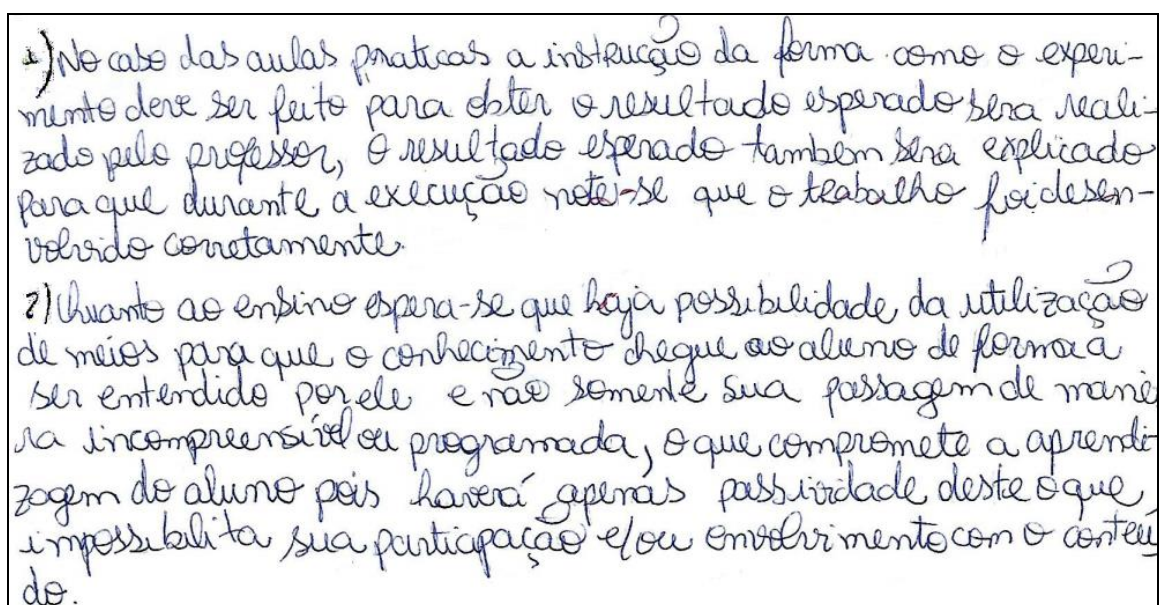 1) No caso das aulas praticas a instrução da forma como o experi-
mento deve ser feito para obter o resultado esperado sera reali-
zado pelo professor, o resultado esperado tambem sera explicado
para que durante a execução note-se que o trabalho foi desen-
volvido corretamente.
2) Quanto ao ensino espera-se que haja possibilidade da utilização
de meios para que o conhecimento chegue ao aluno de forma a
ser entendido por ele e não somente sua passagem de manei
ra incompreensível ou programada, o que compromete a aprendi-
zagem do aluno pois haverá apenas passividade deste o que
impossibilita sua participação e/ou envolvimento com o conteú
do.